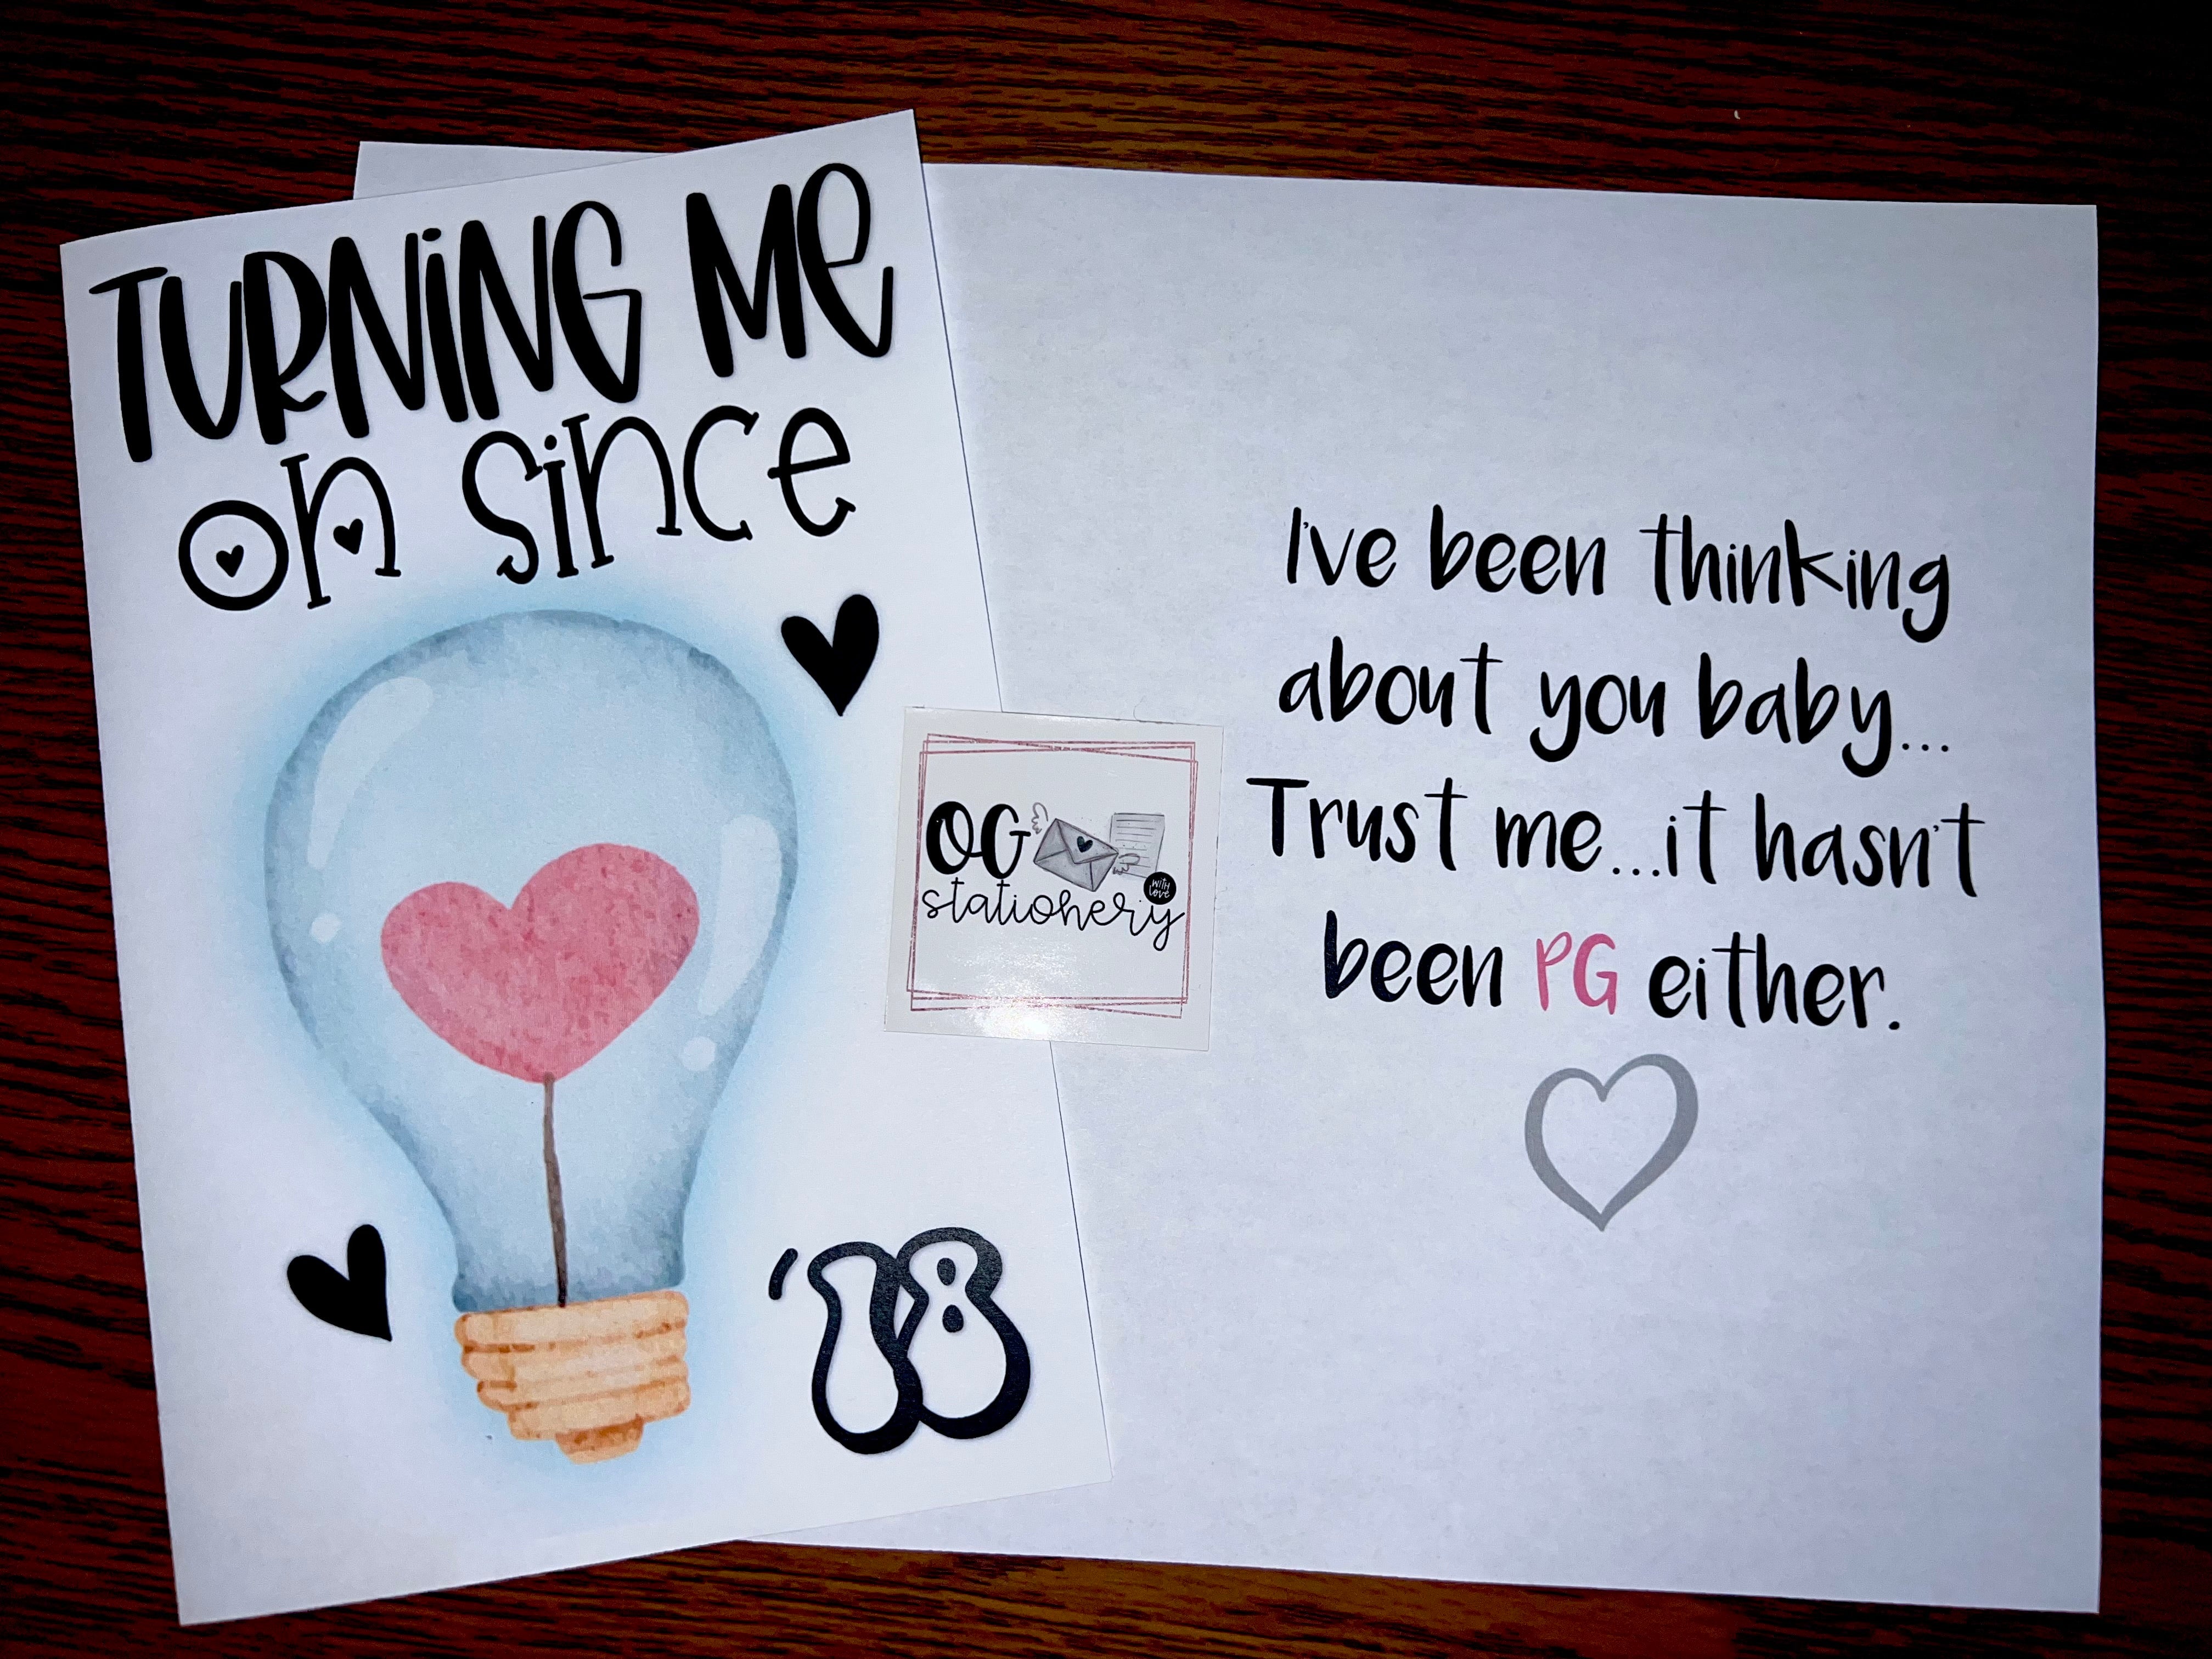 TURNiNG Me
on since
'18
OG
stationery
WITH
Love
I've been thinking
about you baby...
Trust me...it hasn't
been PG either.